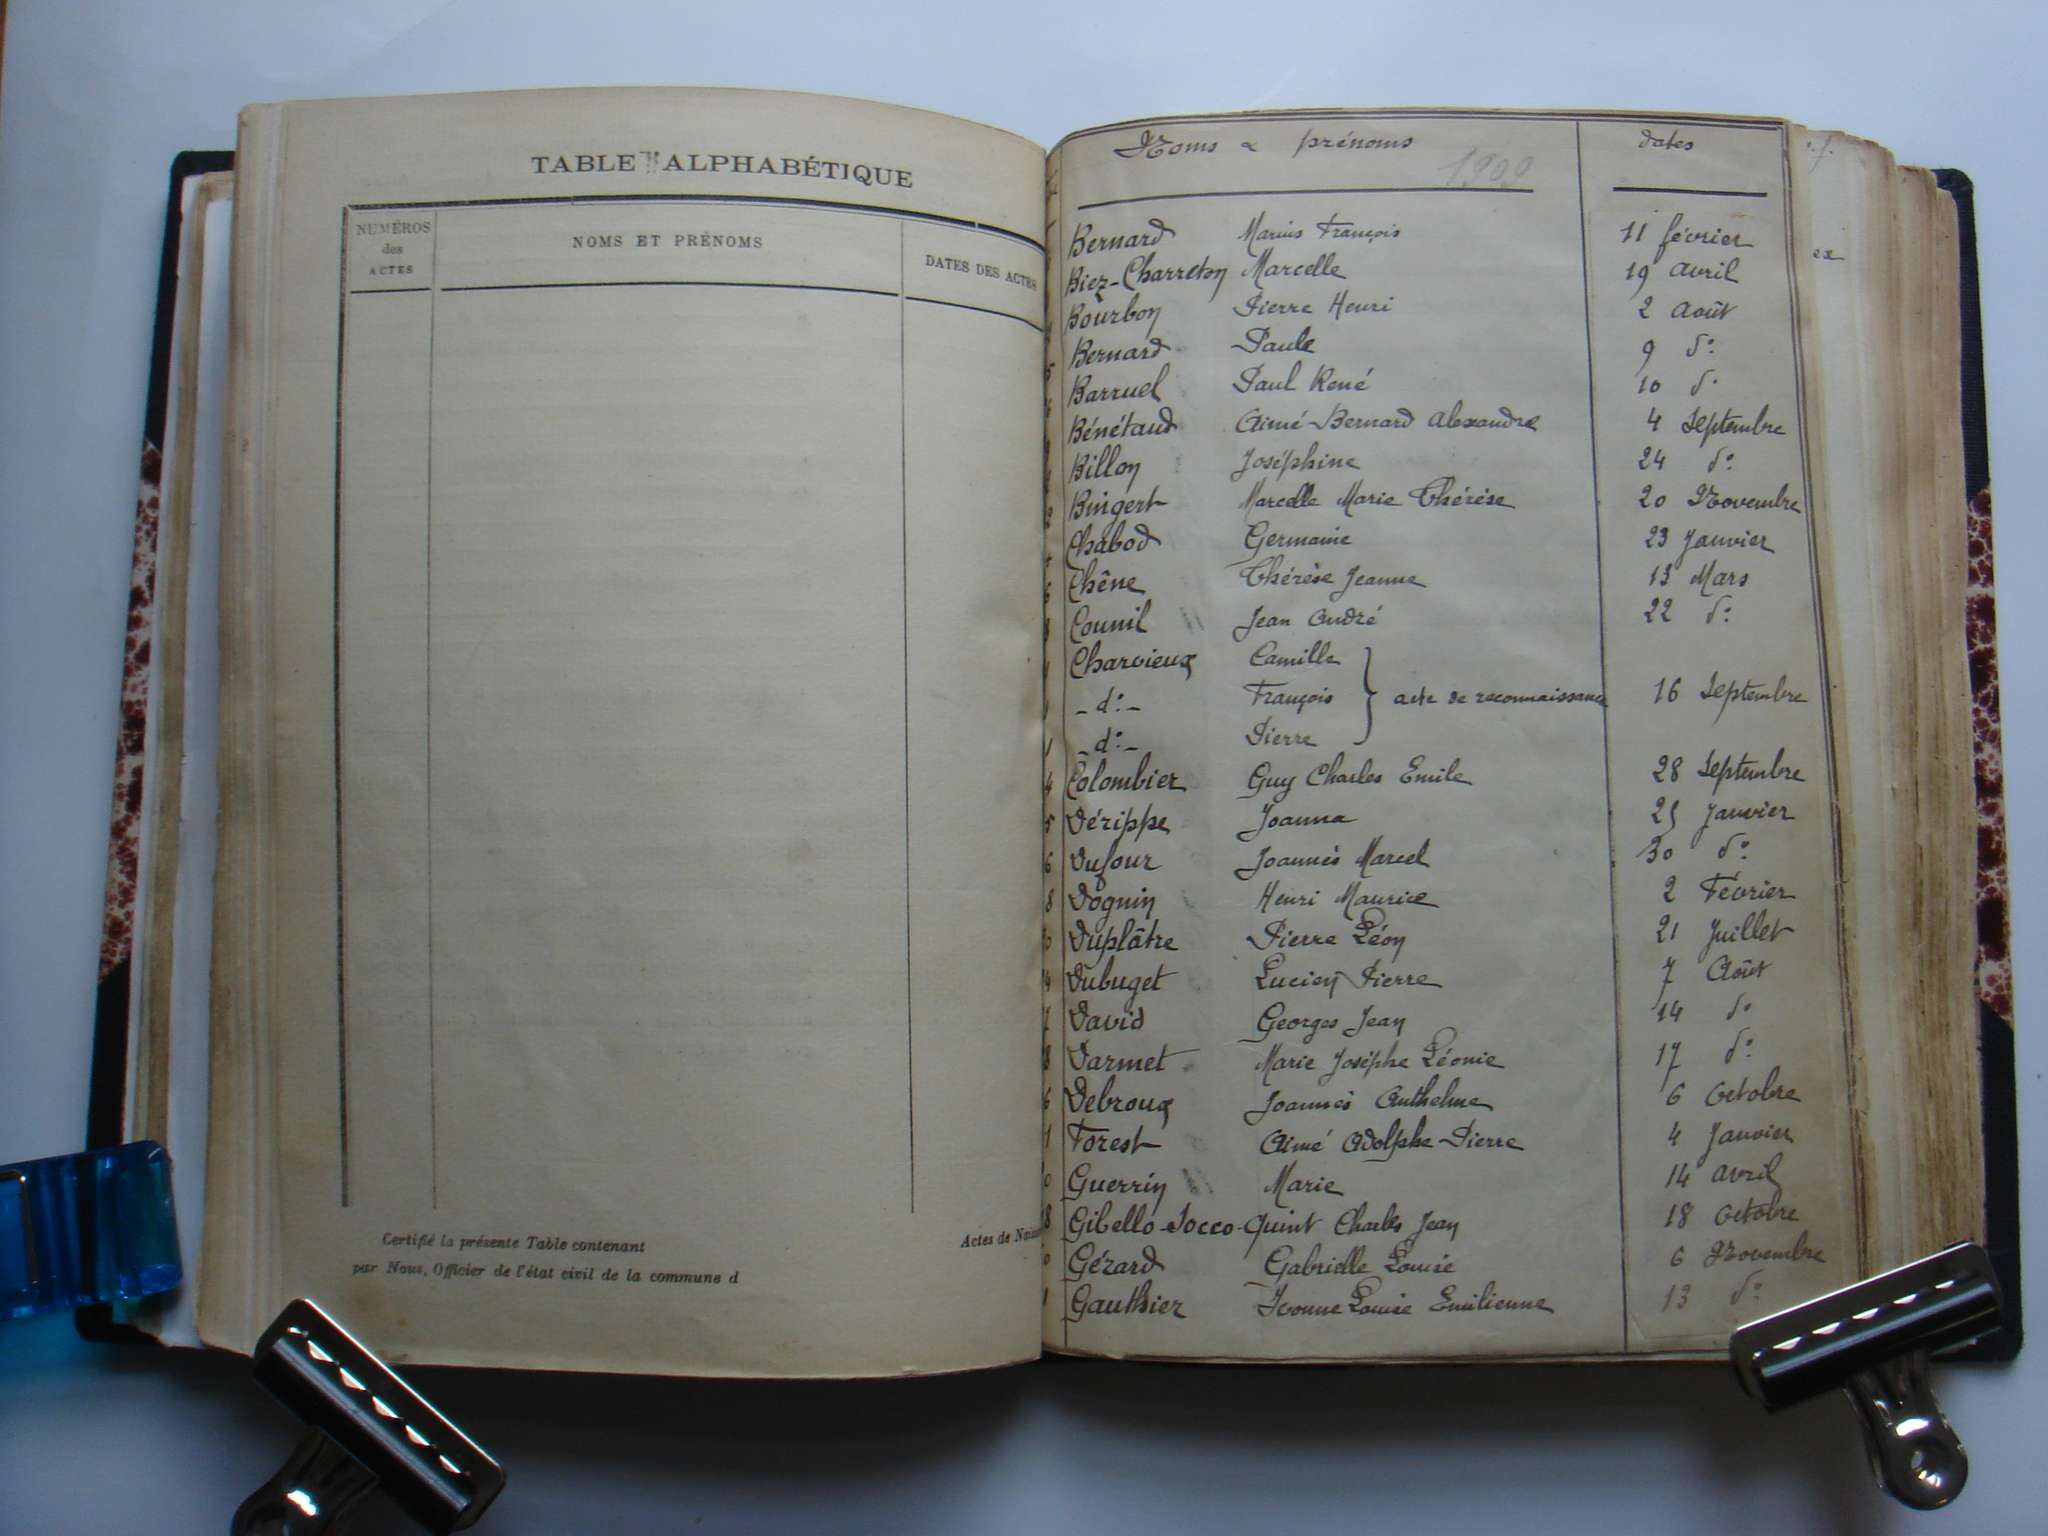 TABLE ALPHABÉTIQUE
NUMÉROS des ACTES
NOMS ET PRÉNOMS
DATES DES ACTES
Certifié la présente Table contenant Actes de
par Nous, Officier de l'état civil de la commune d
Noms & prénoms dates
1909
Bernard Marius François 11 février
Biez-Charreton Marcelle 19 avril
Bourbon Pierre Henri 2 Août
Bernard Paule 9 d°
Barruel Paul René 10 d°
Bénétaud Aimé-Bernard Alexandre 4 Septembre
Billon Joséphine 24 d°
Bingert Marcelle Marie Thérèse 20 Novembre
Chabod Germaine 23 Janvier
Chêne Thérèse Jeanne 13 Mars
Counil Jean André 22 d°
Charvieux Camille
- d° - François acte de reconnaissance 16 Septembre
- d° - Pierre
Colombier Guy Charles Emile 28 Septembre
Dérippe Joanna 25 Janvier
Dufour Joannès Marcel 30 d°
Doguin Henri Maurice 2 Février
Duplâtre Pierre Léon 21 Juillet
Dubuget Lucien Pierre 7 Août
David Georges Jean 14 d°
Darmet Marie Josèphe Léonie 17 d°
Debroux Joannès Anthelme 6 Octobre
Forest Aimé Adolphe-Pierre 4 Janvier
Guerrin Marie 14 avril
Gibello-Socco-Quint Charles Jean 18 Octobre
Gérard Gabrielle Louise 6 Novembre
Gauthier Yvonne Louise Emilienne 13 d°